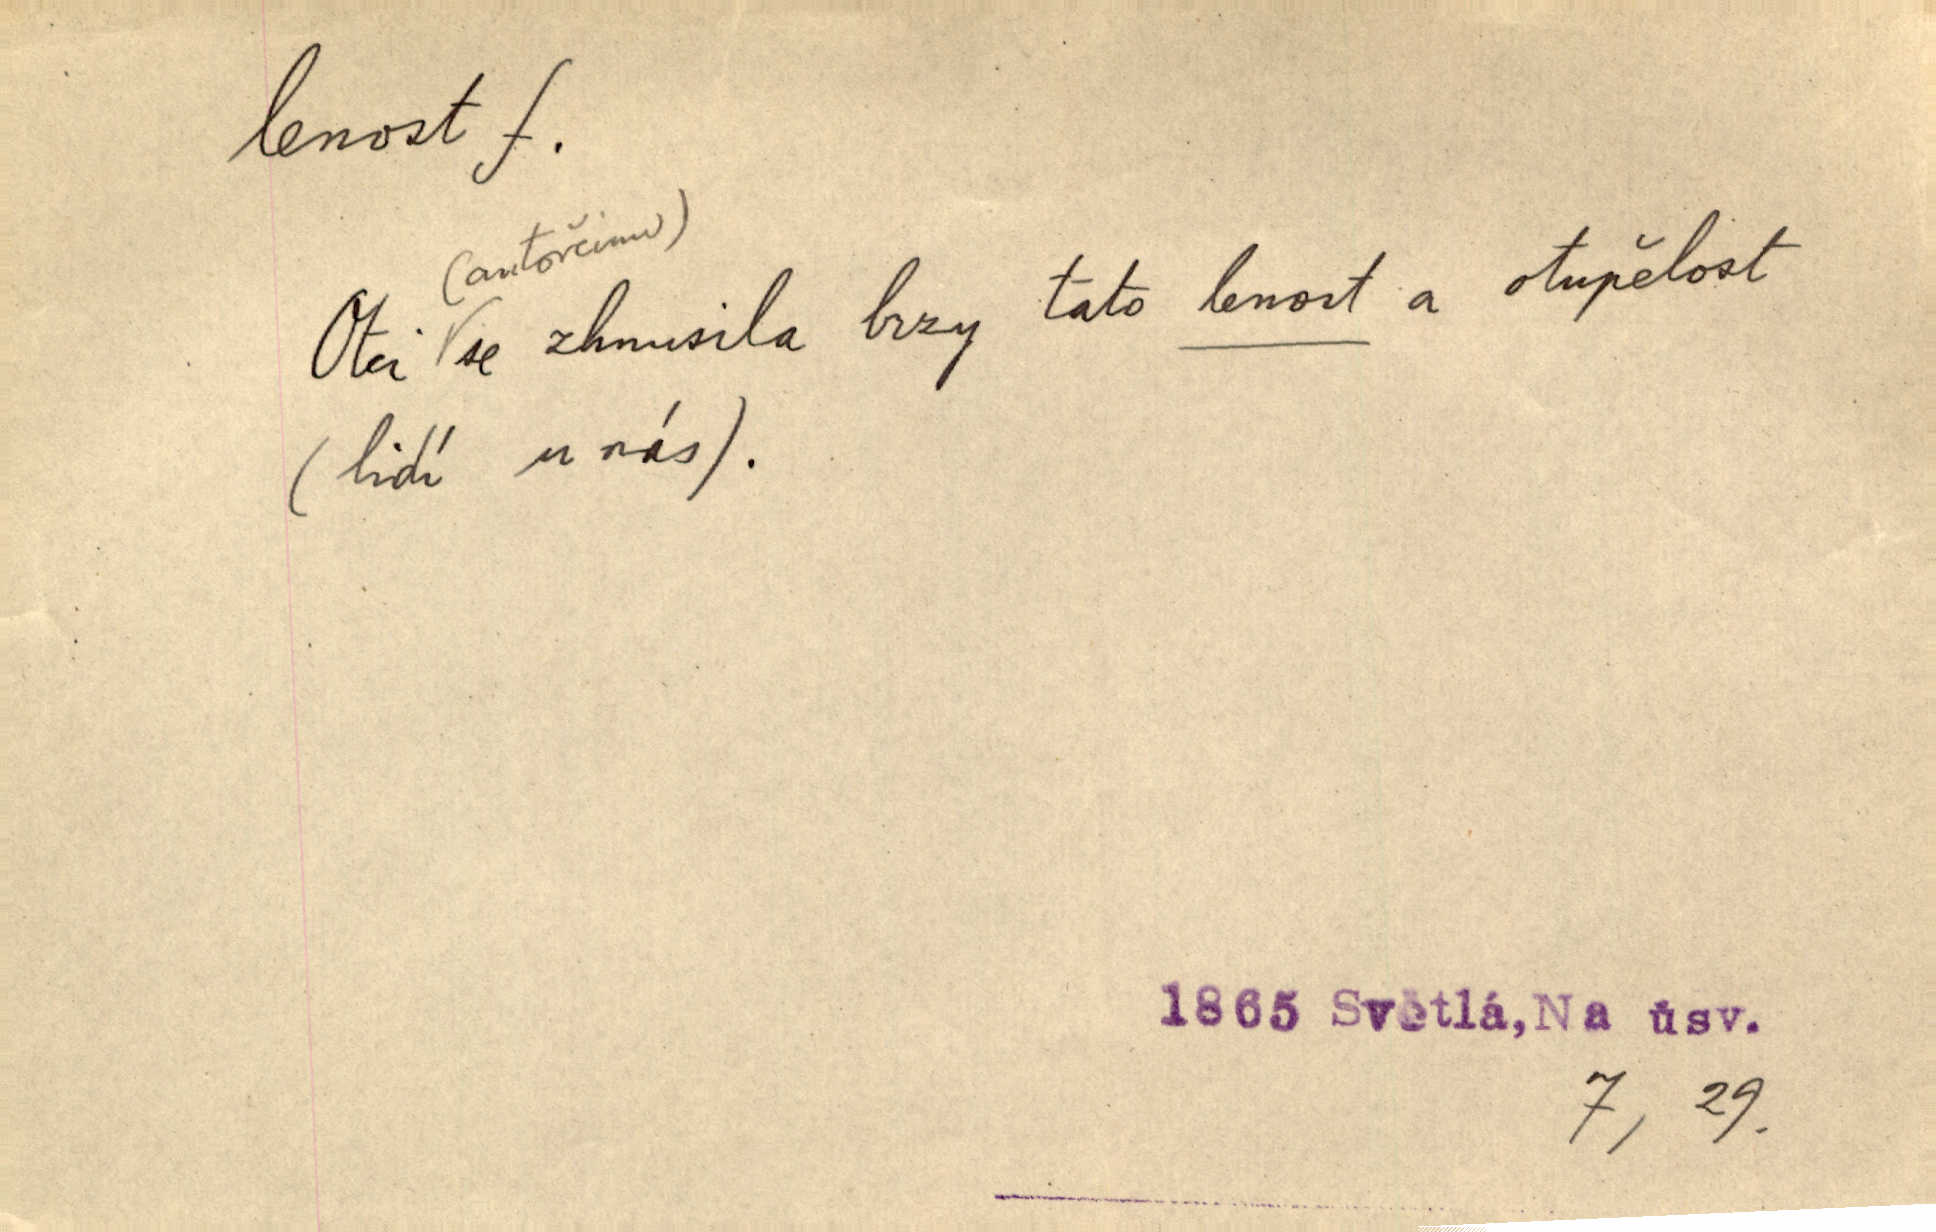 lenost f.
(autorčinu)
Otci se zhnusila brzy tato lenost a otupělost
(lidí u nás).
1865 Světlá, Na úsv.
7, 29.